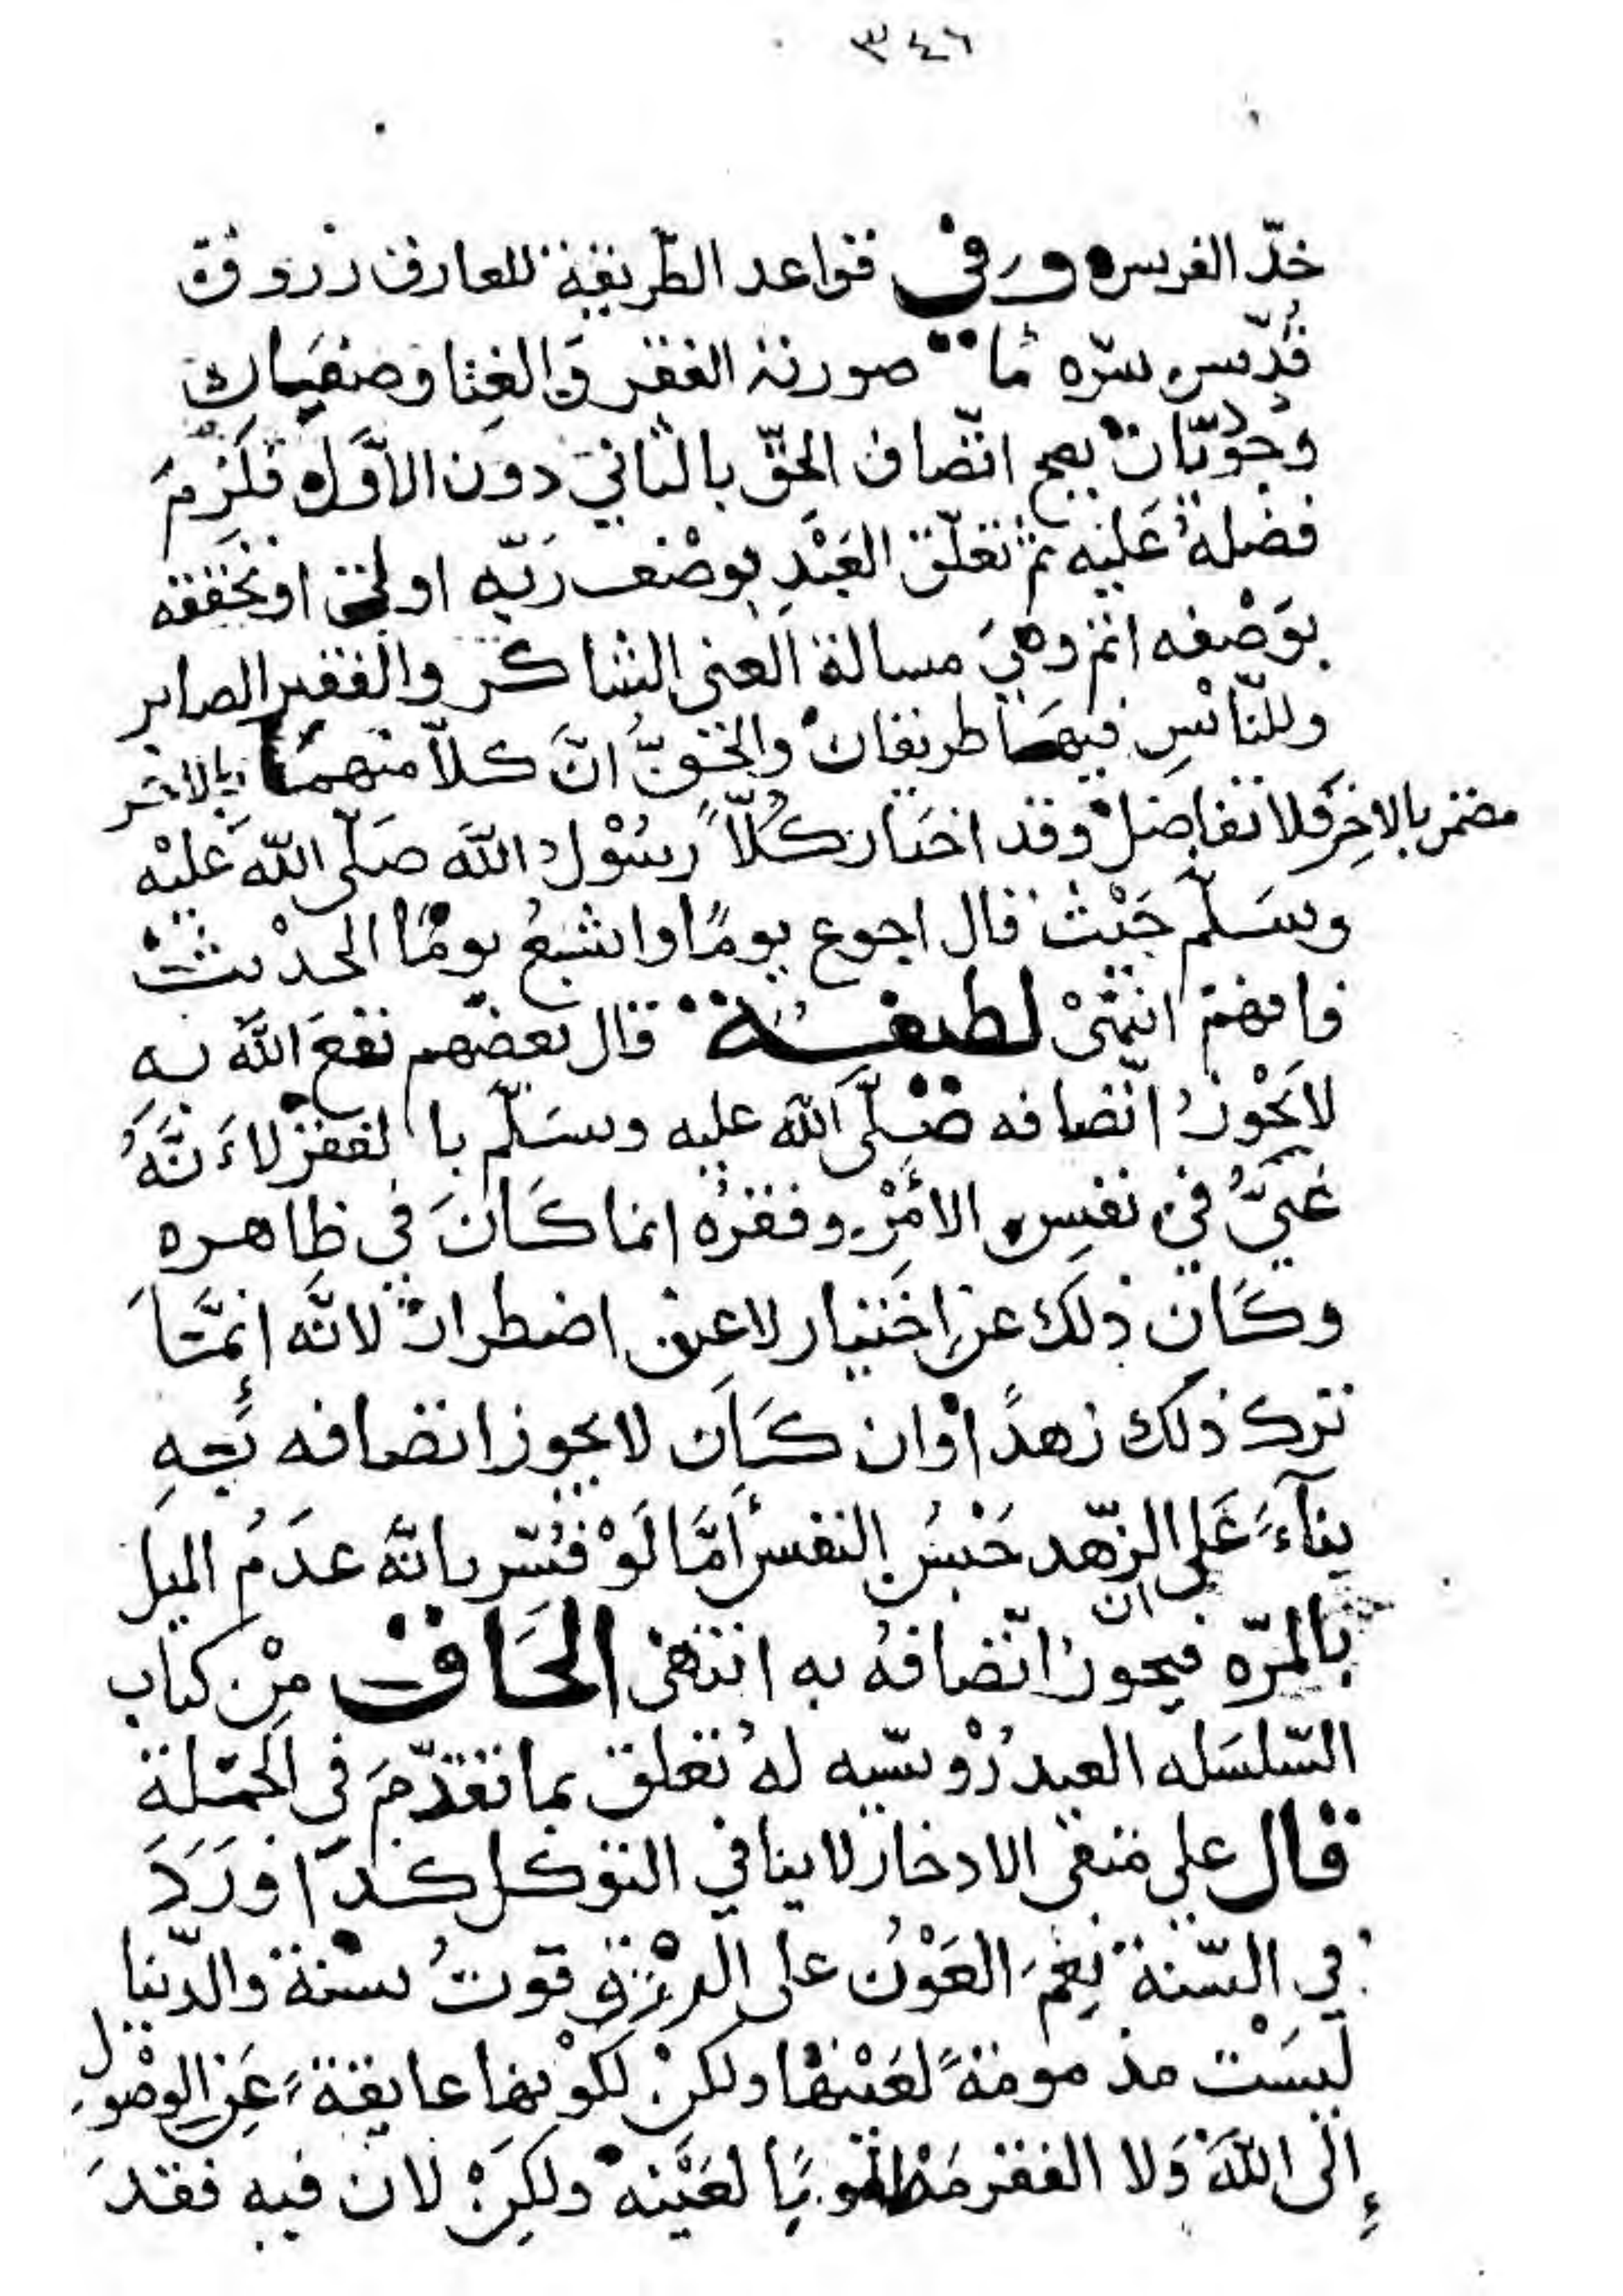 ٣٤٦
خدّ الفرس وَفي قواعد الطّريقة للعارف زروق
قُدّس سرّه ما صورته الفقر وَالغِنا وصفيان
وُجُوديّان يصح اتّصاف الحقّ بالثاني دون الاوّل فَلَزِمَ
فضلهُ عَليْه ثم تعلّق العَبْدِ بوصْف رَبّه اولى او تحققه
بوَصْفه اتم وهيَ مسالة الغنى الشاكر والفقير الصابر
وللنّاسِ فيهَما طريقان والحَقّ انَّ كلاّ منهما بالاخر
مضمر بالاخِر فلا تفاضل وقد اختار كُلّاً رسُوْل الله صَلّى الله عَليْه
وسَلّم حَيْث قال اجوع يومًا واشبعُ يومًا الحديث
فافهم انتهَىْ لطيفة قال بعضهم نفعَ الله به
لا يَجْوزُ اتّصافه صَلّى الله عليه وسَلّم بالفقر لاَنَّهُ
غَنيٌّ في نفسِ الأمْرِ وفقرُه انما كَانَ في ظاهره
وكَان ذلك عن اختيار لا عن اضطرار لانَّه انمَّا
ترك ذلك زهدًا وان كَان لا يجوز اتصافه بهِ
بنآءً عَلى ان الزّهد حَبْسُ النفس أمَّا لَوْ فُسّر بانّه عدَمُ الميل
بالمرّه فيجوز اتّصافهُ به انتهى الحَاق مِنْ كتاب
السّلسَله العيدرُوْسيّه لهُ تعلق بما تقدّمَ في الجمْلة
قال علي متقى الادخار لا ينافي التوكل كذا وَرَدَ
في السّنة نِعْمَ العَوْن على الدِّيْنِ قوتُ سَنة والدّنيا
ليسَتْ مذمومَةً لعَيْنها ولكنْ لكوْنها عايقةً عَنِ الوصُول
إلى اللهَ وَلا الفقر مَطلوبًا لعَيْنه ولكِنْ لان فيه فقدَ